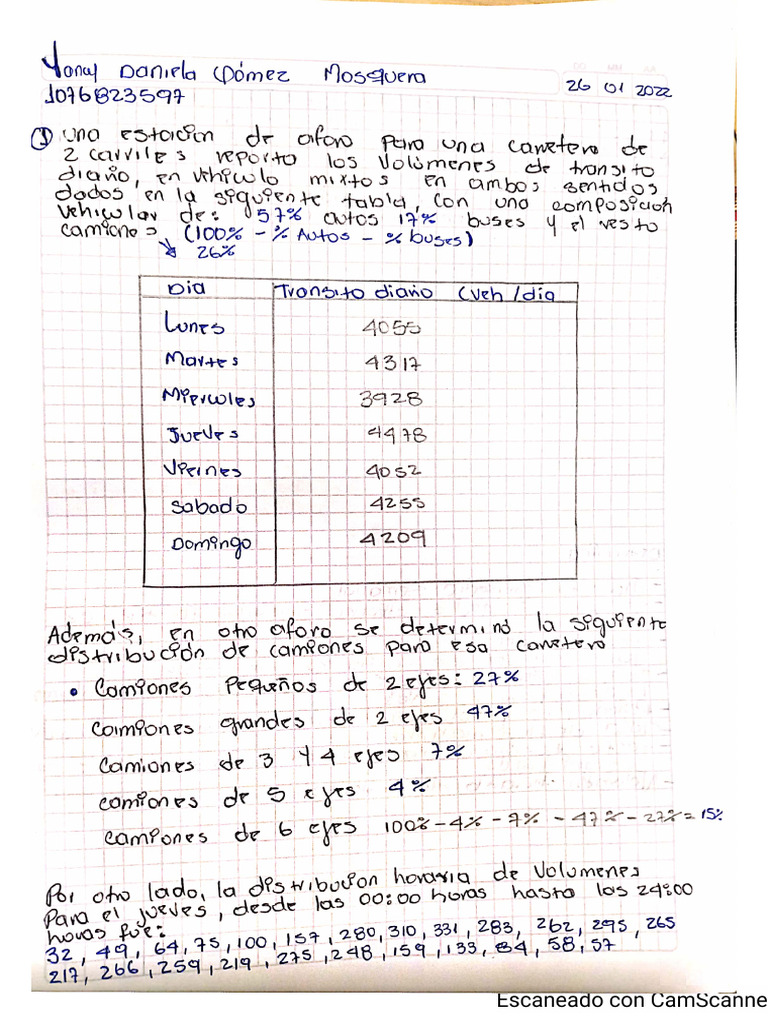 Yonay Daniela Gómez Mosquera
26 01 2022
1076823597
① una estación de aforo para una carretera de
2 carriles reporto los Volúmenes de transito
diario, en vehiculo mixtos en ambos sentidos
dados en la siguiente tabla, con una composicion
vehicular de: 57% autos 17% buses y el resto
camiones (100% - % Autos - % buses)
26%
Dia Transito diario (veh/dia
Lunes 4055
Martes 4317
Miercoles 3928
Jueves 4478
Viernes 4052
Sabado 4255
Domingo 4209
Además, en otro aforo se determinó la siguiente
distribución de camiones para esa carretera
• Camiones Pequeños de 2 ejes: 27%
Camiones grandes de 2 ejes 47%
Camiones de 3 y 4 ejes 7%
camiones de 5 ejes 4%
camiones de 6 ejes 100% - 4% - 7% - 47% - 27% = 15%
Por otro lado, la distribucion horaria de Volumenes
Para el jueves, desde las 00:00 horas hasta las 24:00
horas fue:
32, 49, 64, 75, 100, 157, 280, 310, 331, 283, 262, 295, 265
217, 266, 259, 219, 275, 248, 159, 133, 84, 58, 57
Escaneado con CamScanne